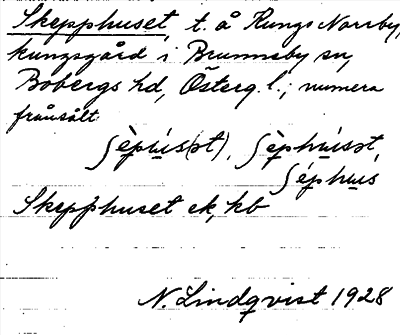 Skepphuset, t. å Kungs Norrby,
kungsgård i Brunneby sn,
Bobergs hd, Österg. l.; numera
frånsålt
ʃèpu̱s(ət), ʃèphu̱sət,
ʃéphu̱s
Skepphuset ek, kb
N. Lindqvist 1928